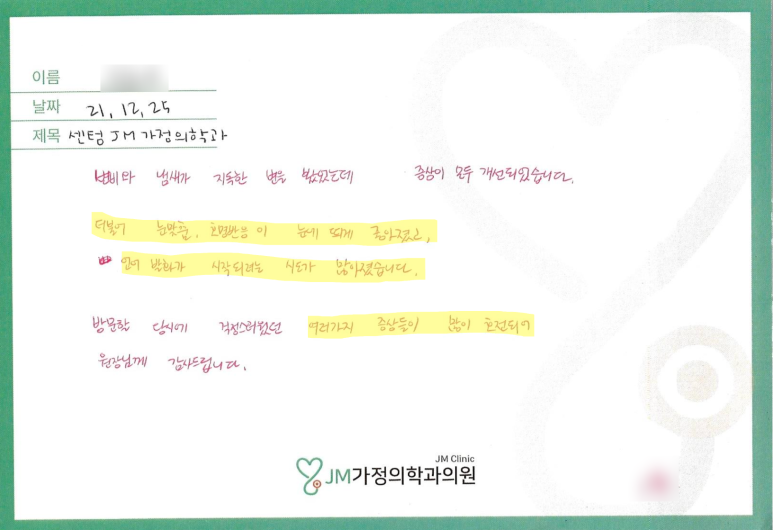 이름
날짜 21, 12, 25
제목 센텀 JM 가정의학과
변비와 냄새가 지독한 변을 봤었는데 증상이 모두 개선되었습니다.
더불어 눈맞춤, 호명반응이 눈에 띄게 좋아졌고,
언어 발화가 시작되려는 시도가 많아졌습니다.
방문할 당시에 걱정스러웠던 여러가지 증상들이 많이 호전되어
원장님께 감사드립니다.
JM Clinic
JM가정의학과의원